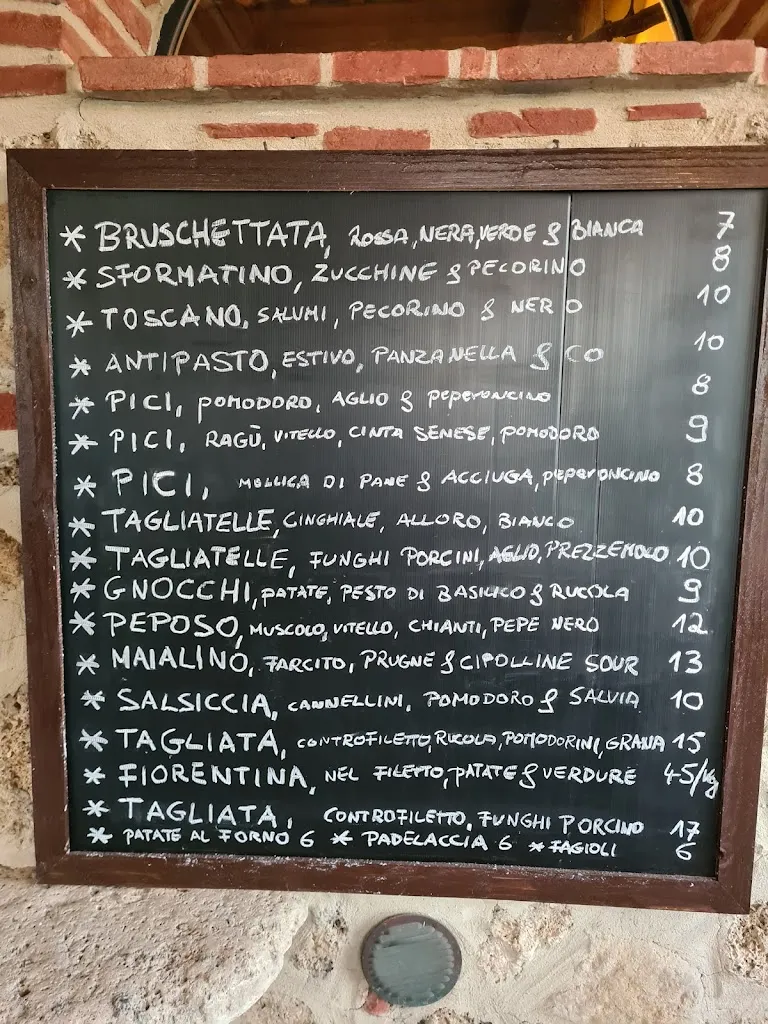 * BRUSCHETTATA, ROSSA, NERA, VERDE & BIANCA 7
* SFORMATINO, ZUCCHINE & PECORINO 8
* TOSCANO, SALUMI, PECORINO & NERO 10
* ANTIPASTO, ESTIVO, PANZANELLA & CO 10
* PICI, POMODORO, AGLIO & PEPERONCINO 8
* PICI, RAGÙ, VITELLO, CINTA SENESE, POMODORO 9
* PICI, MOLLICA DI PANE & ACCIUGA, PEPERONCINO 8
* TAGLIATELLE, CINGHIALE, ALLORO, BIANCO 10
* TAGLIATELLE, FUNGHI PORCINI, AGLIO, PREZZEMOLO 10
* GNOCCHI, PATATE, PESTO DI BASILICO & RUCOLA 9
* PEPOSO, MUSCOLO, VITELLO, CHIANTI, PEPE NERO 12
* MAIALINO, FARCITO, PRUGNE & CIPOLLINE SOUR 13
* SALSICCIA, CANNELLINI, POMODORO & SALVIA 10
* TAGLIATA, CONTROFILETTO, RUCOLA, POMODORINI, GRANA 15
* FIORENTINA, NEL FILETTO, PATATE & VERDURE 45/kg
* TAGLIATA, CONTROFILETTO, FUNGHI PORCINO 17
* PATATE AL FORNO 6 * PADELACCIA 6 * FAGIOLI 6